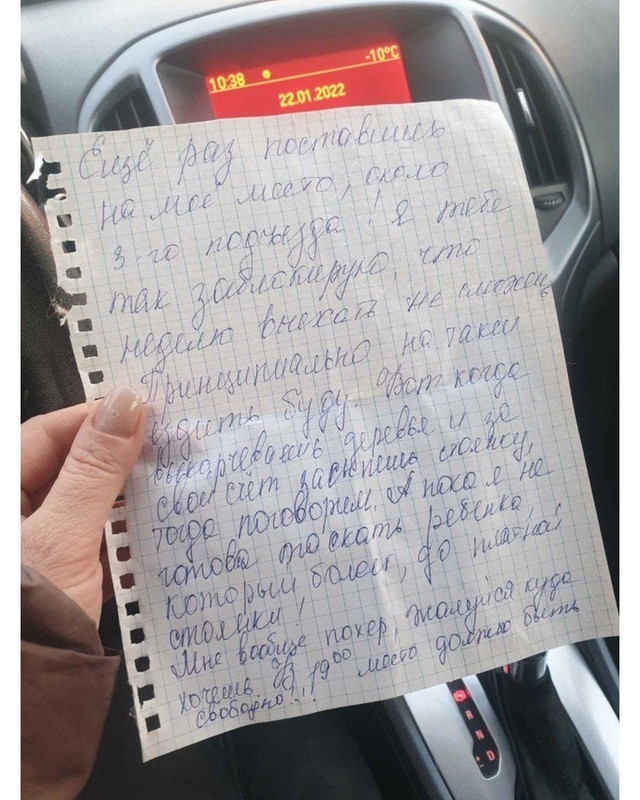 10:38
-10°C
22.01.2022
Ещё раз поставишь
на моё место, около
3-го подъезда! Я тебе
так заблокирую, что
неделю выехать не сможешь
Принципиально на такси
ездить буду. Вот когда
выкорчеваешь деревье и за
свой счёт заснешь стоянку,
тогда поговорем. А пока я не
готова таскать ребенка,
который болеет, до платной
стоянки!
Мне вообще похер, жалуйся куда
хочешь. В 19⁰⁰ место должно быть
свободно!..
R
N
D